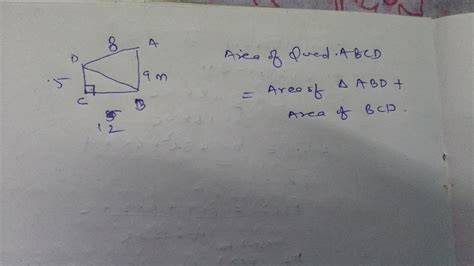 8
D
A
.5
9 m
C
B
12
Area of Quad. ABCD
= Area of Δ ABD +
Area of BCD.